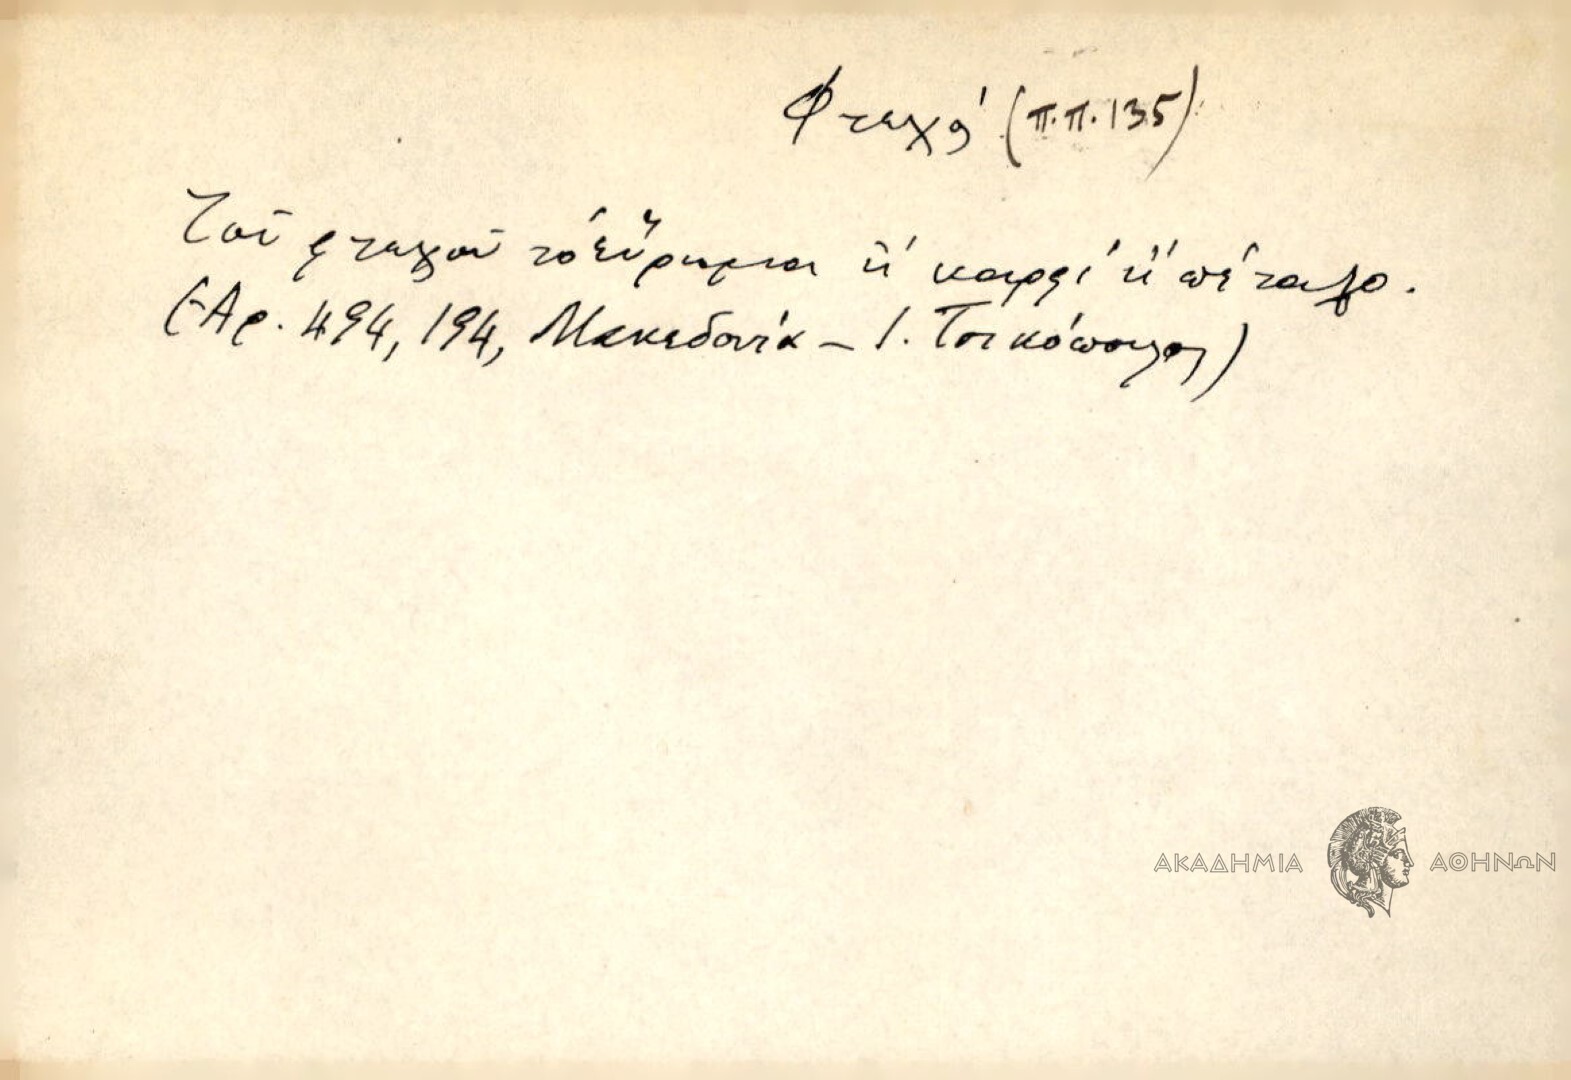 Φτωχός (π.π. 135)
Τοῦ φτωχοῦ τὸ εὕρημα ἢ καρφὶ ἢ πέταλο.
(Ἀρ. 494, 194, Μακεδονία – Ι. Τσικόπουλος)
ΑΚΑΔΗΜΙΑ ΑΘΗΝΩΝ